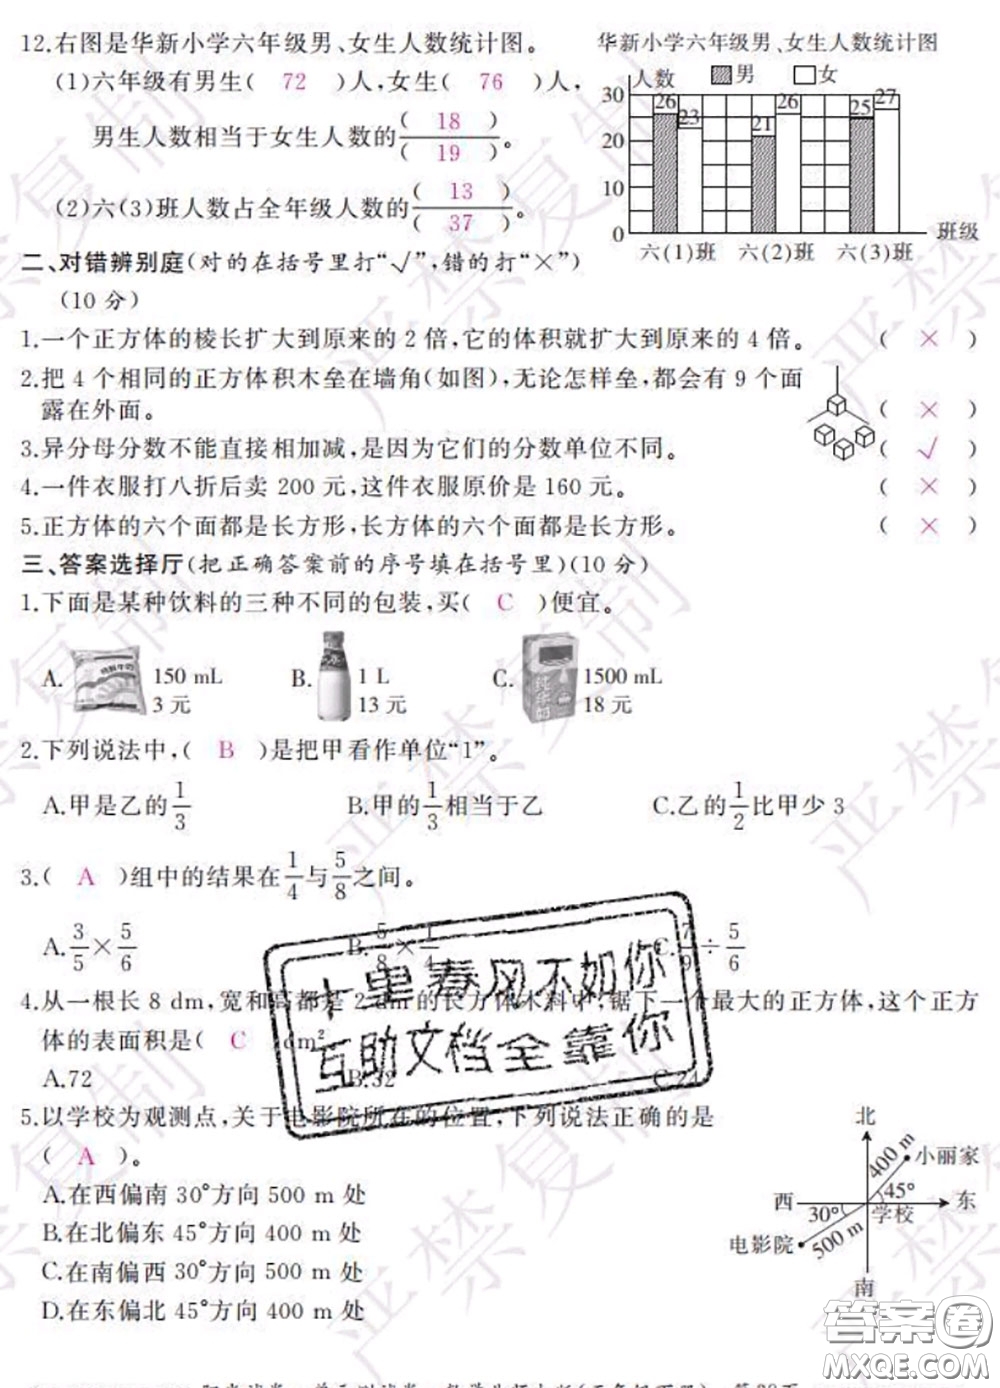 12.右图是华新小学六年级男、女生人数统计图。
(1)六年级有男生( 72 )人,女生( 76 )人,
男生人数相当于女生人数的( 18 )/( 19 )。
(2)六(3)班人数占全年级人数的( 13 )/( 37 )。
华新小学六年级男、女生人数统计图
人数 男 女
30
20
10
0
26 23 21 26 25 27
六(1)班 六(2)班 六(3)班 班级
二、对错辨别庭(对的在括号里打“√”,错的打“×”)
(10 分)
1.一个正方体的棱长扩大到原来的 2 倍,它的体积就扩大到原来的 4 倍。 ( × )
2.把 4 个相同的正方体积木垒在墙角(如图),无论怎样垒,都会有 9 个面
露在外面。 ( × )
3.异分母分数不能直接相加减,是因为它们的分数单位不同。 ( √ )
4.一件衣服打八折后卖 200 元,这件衣服原价是 160 元。 ( × )
5.正方体的六个面都是长方形,长方体的六个面都是长方形。 ( × )
三、答案选择厅(把正确答案前的序号填在括号里)(10 分)
1.下面是某种饮料的三种不同的包装,买( C )便宜。
A. 150 mL 3 元 B. 1 L 13 元 C. 1500 mL 18 元
2.下列说法中,( B )是把甲看作单位“1”。
A.甲是乙的1/3 B.甲的1/3相当于乙 C.乙的1/2比甲少 3
3.( A )组中的结果在1/4与5/8之间。
A.3/5×5/6 B.5/8×1/4 C.7/9÷5/6
4.从一根长 8 dm,宽和高都是 2 dm的长方体木料中,锯下一个最大的正方体,这个正方
体的表面积是( C )dm²
A.72 B.32 C.24
十里春风不如你
互助文档全靠你
5.以学校为观测点,关于电影院所在的位置,下列说法正确的是
( A )。
A.在西偏南 30°方向 500 m 处
B.在北偏东 45°方向 400 m 处
C.在南偏西 30°方向 500 m 处
D.在东偏北 45°方向 400 m 处
北
400 m 小丽家
西 45° 东
30° 学校
电影院 500 m
南
严禁复制
答案圈
MXQE.COM